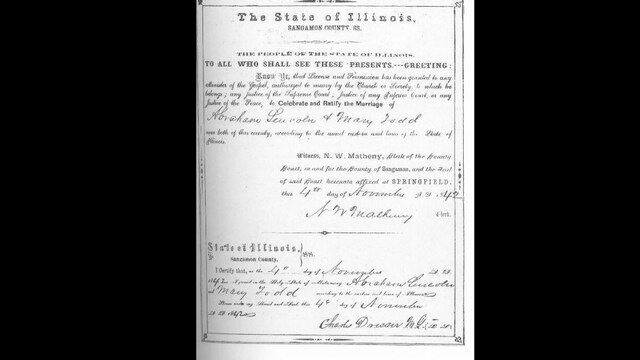 The State of Illinois,
SANGAMON COUNTY. SS.
THE PEOPLE OF THE STATE OF ILLINOIS.
TO ALL WHO SHALL SEE THESE PRESENTS,---GREETING:
Know Ye, that License and Permission has been granted to any
Minister of the Gospel, authorized to marry by the Church or Society, to which he
belongs; any Justice of the Supreme Court; Justice of any Inferior Court, or any
Justice of the Peace, to Celebrate and Ratify the Marriage of
Abraham Lincoln & Mary Todd
now both of this county, according to the usual custom and laws of the State of
Illinois.
Witness, N. W. Matheny, Clerk of the County
Court, in and for the County of Sangamon, and the Seal
of said Court hereunto affixed at SPRINGFIELD,
this 4th day of November A.D. 1842
N W Matheny Clerk.
State of Illinois,
Sangamon County. SS.
I Certify that, on the 4th day of November A.D.
1842 I joined in the Holy State of Matrimony Abraham Lincoln
& Mary Todd according to the custom and laws of Illinois
Given under my Hand and Seal this 4th day of November
A.D. 1842
Charles Dresser